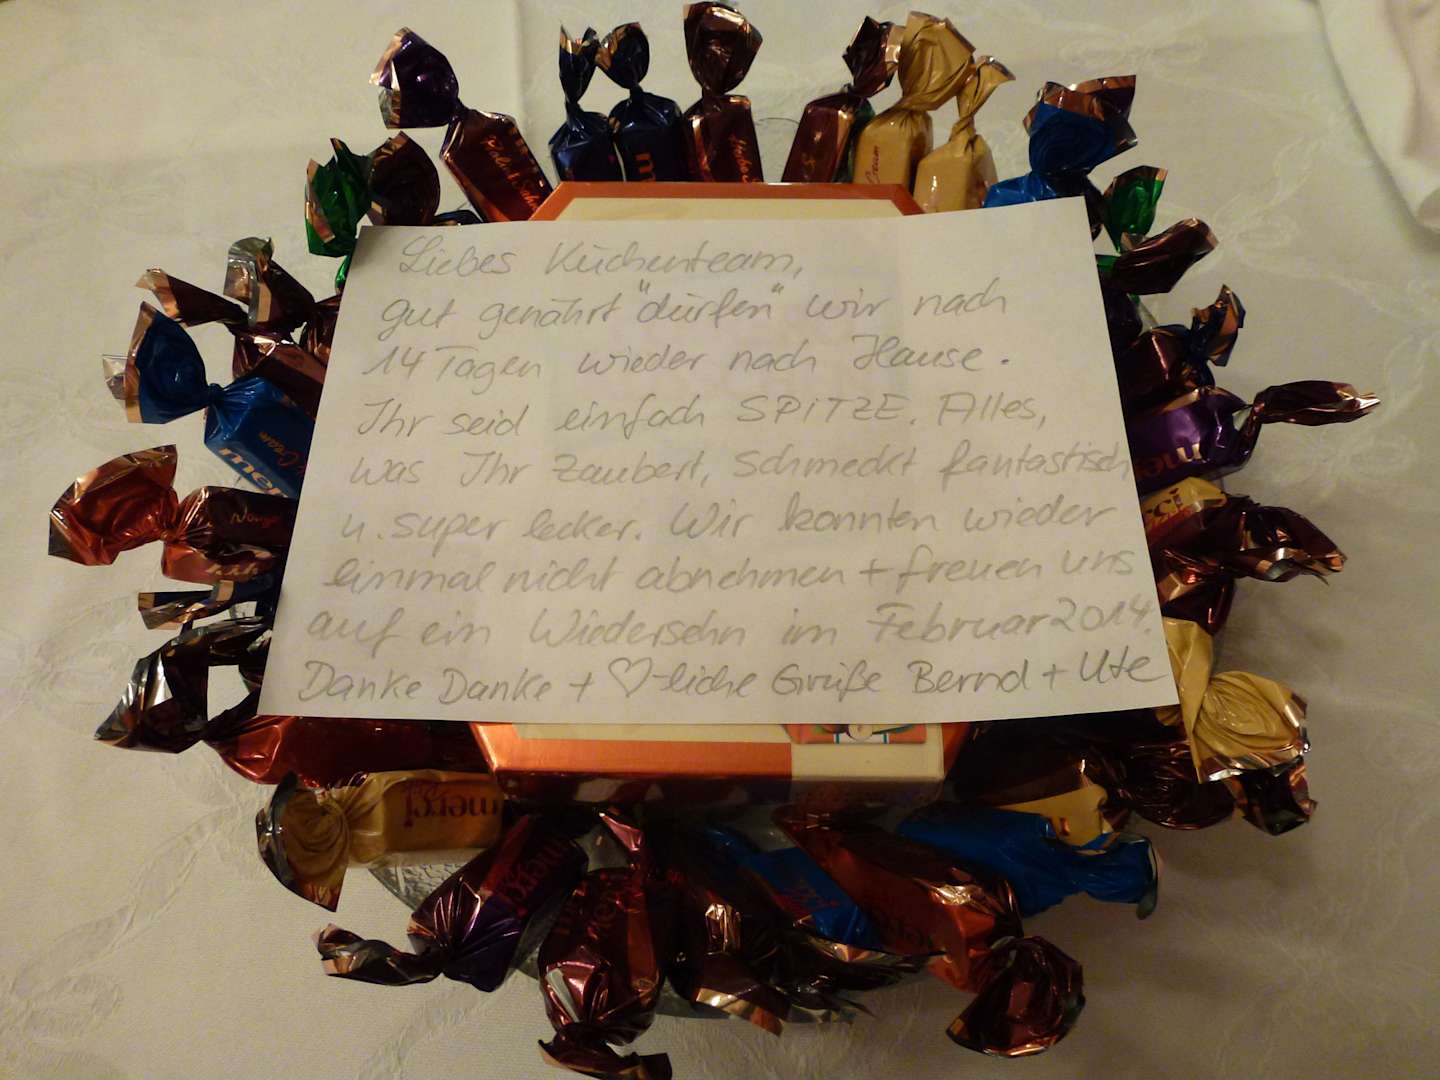 Liebes Küchenteam,
gut genährt "dürfen" wir nach
14 Tagen wieder nach Hause.
Ihr seid einfach SPITZE. Alles,
was Ihr zaubert, schmeckt fantastisch
u. super lecker. Wir konnten wieder
einmal nicht abnehmen + freuen uns
auf ein Wiedersehn im Februar 2014.
Danke Danke + ♡-liche Grüße Bernd + Ute
merci
merci
merci
merci